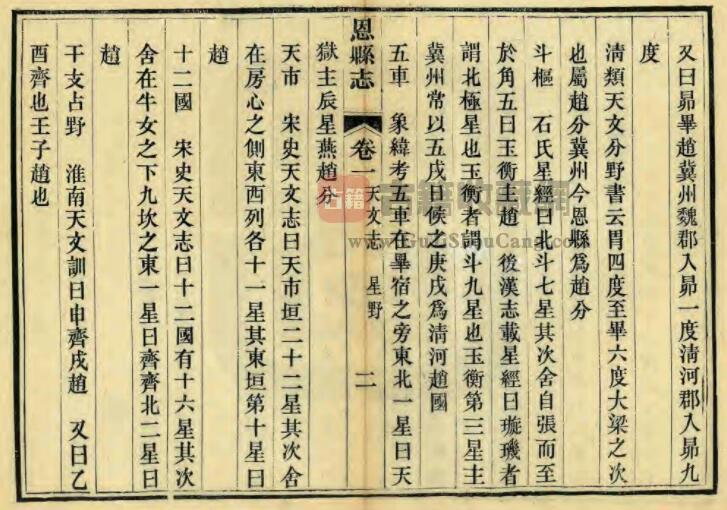 又曰昴畢趙冀州魏郡入昴一度清河郡入昴九
度
清類天文分野書云胃四度至畢六度大梁之次
也屬趙分冀州今恩縣爲趙分
斗樞　石氏星經曰北斗七星其次舍自張而至
於角五曰玉衡主趙　後漢志載星經曰璇璣者
謂北極星也玉衡者謂斗九星也玉衡第三星主
冀州常以五戌日候之庚戌爲清河趙國
五車　象緯考五車在畢宿之旁東北一星曰天
恩縣志　卷一　天文志　星野　二
獄主辰星燕趙分
天市　宋史天文志曰天市垣二十二星其次舍
在房心之側東西列各十一星其東垣第十星曰
趙
十二國　宋史天文志曰十二國有十六星其次
舍在牛女之下九坎之東一星曰齊齊北二星曰
趙
干支占野　淮南天文訓曰申齊戌趙　又曰乙
酉齊也壬子趙也
古籍收藏網
www.GuJiShouCang.com